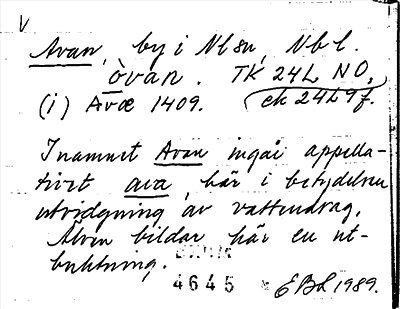 V
Avan, by i Nlsn, Nbl.
òvan. TK 24L NO,
(i) Avæ 1409. ek 24L9f.
I namnet Avan ingår appella-
tivet ava, här i betydelsen
utvidgning av vattendrag.
Älven bildar här en ut-
buktning.
4645 EBL 1989.